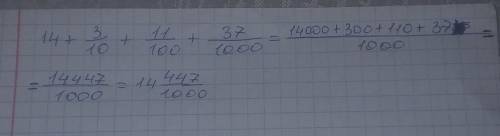 14 + 3/10 + 11/100 + 37/1000 = (14000 + 300 + 110 + 37)/1000 =
= 14447/1000 = 14 447/1000